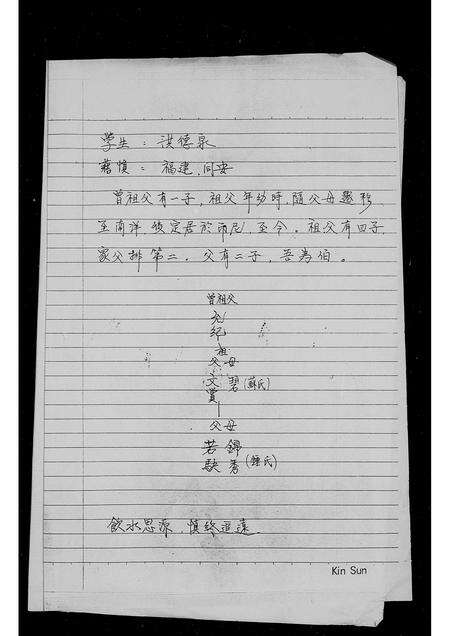 学生：洪德泉
藉慎：福建，同安
曾祖父有一子，祖父年幼時，隨父母遷移
至南洋後定居於印尼，至今。祖父有四子，
家父排第二，父有二子，吾為伯。
曾祖父
允
紀
祖
父母
文碧(蘇氏)
賞
父母
若錦
駃秀(鍾氏)
飲水思源，慎终追遠
Kin Sun